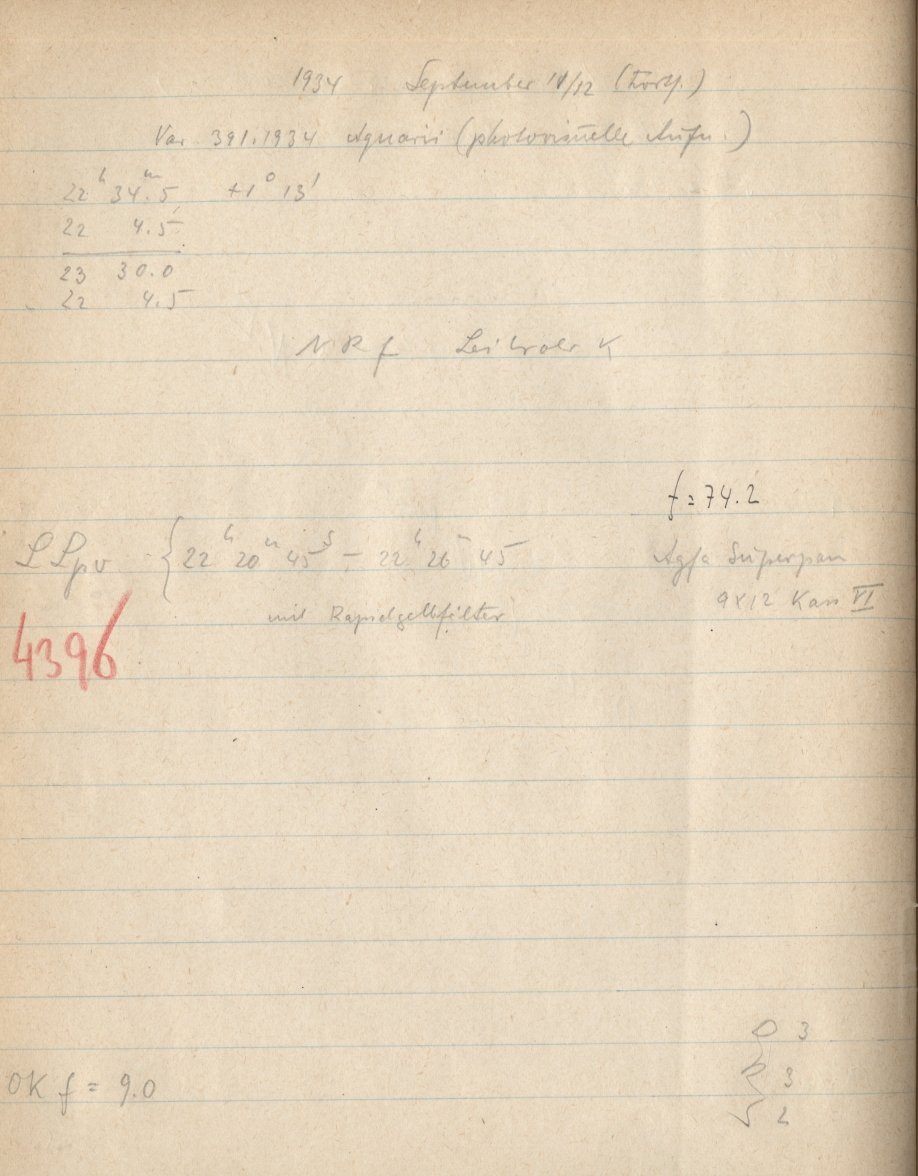 1934 September 11/12 (Forts.)
Var. 391.1934 Aquarii (photovisuelle Aufn.)
22ʰ 34ᵐ.5 +1° 13'
22 4.5
23 30.0
22 4.5
N R f Leitrohr K
f = 74.2
L Lpv { 22ʰ 20ᵐ 45ˢ – 22ʰ 26ᵐ 45 Agfa Superpan
9x12 Kass VI
mit Rapidgelbfilter
4396
3
OK f = 9.0 3
2